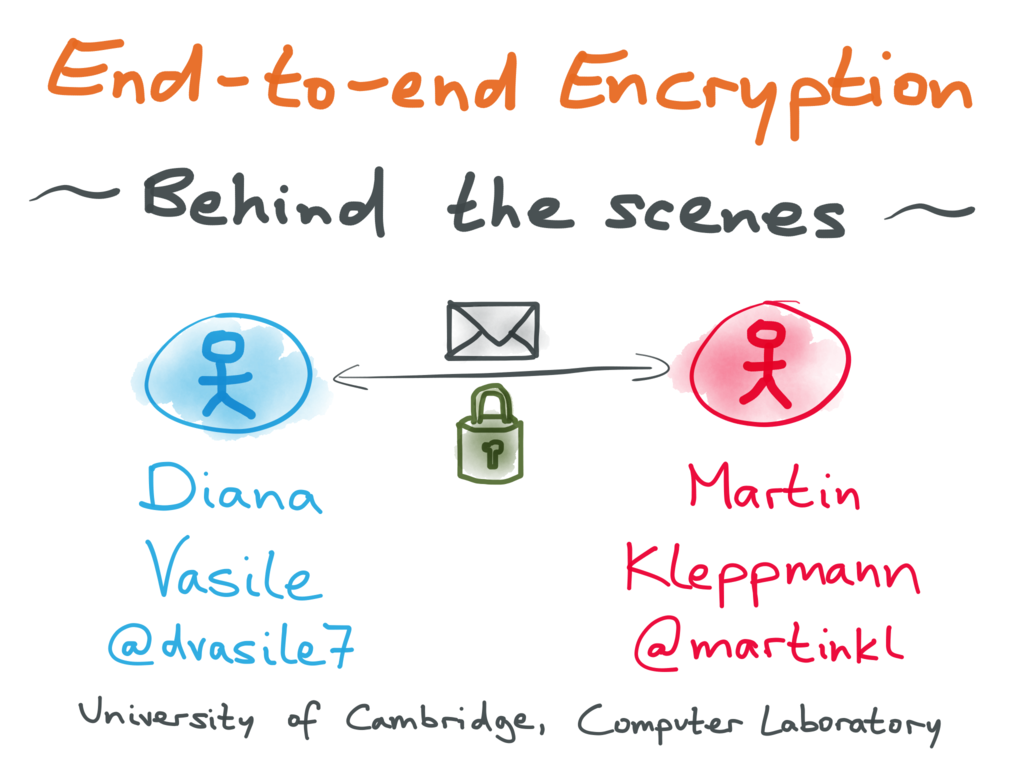 End-to-end Encryption
~ Behind the scenes ~
Diana
Vasile
@dvasile7
Martin
Kleppmann
@martinkl
University of Cambridge, Computer Laboratory